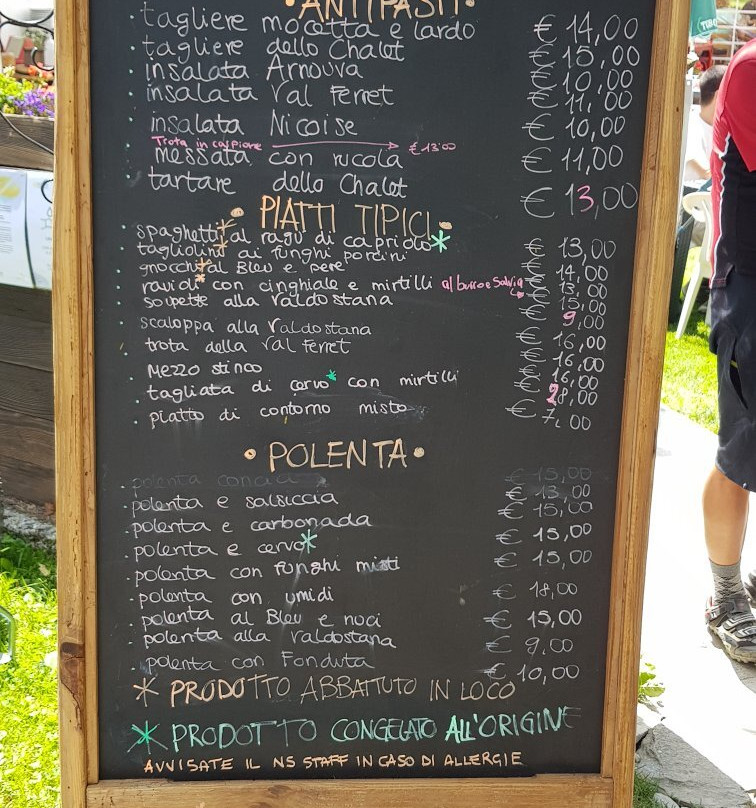 • ANTIPASTI •
• tagliere mocetta e lardo € 14,00
• tagliere dello Chalet € 15,00
• insalata Arnouva € 10,00
• insalata Val Ferret € 11,00
insalata Nicoise € 10,00
Trota in carpione → € 13'00
• messata con rucola € 11,00
• tartare dello Chalet € 13,00
• PIATTI TIPICI •
• spaghetti* al ragù di capriolo* € 13,00
• tagliolini* ai funghi porcini € 14,00
• gnocchi* al Bleu e pere € 13,00
• ravioli* con cinghiale e mirtilli al burro e Salvia € 15,00
• soupette alla Valdostana € 9,00
• scaloppa alla Valdostana € 16,00
• trota della Val Ferret € 16,00
• Mezzo stinco € 16,00
• tagliata di cervo* con mirtilli € 28,00
• piatto di contorno misto € 7,00
• POLENTA •
• polenta concia € 13,00
• polenta e salsiccia € 13,00
• polenta e carbonada € 15,00
• polenta e cervo* € 15,00
• polenta con funghi misti € 15,00
• polenta con umidi € 18,00
• polenta al Bleu e noci € 15,00
• polenta alla Valdostana € 9,00
• polenta con Fonduta € 10,00
* PRODOTTO ABBATTUTO IN LOCO
* PRODOTTO CONGELATO ALL'ORIGINE
AVVISATE IL NS STAFF IN CASO DI ALLERGIE